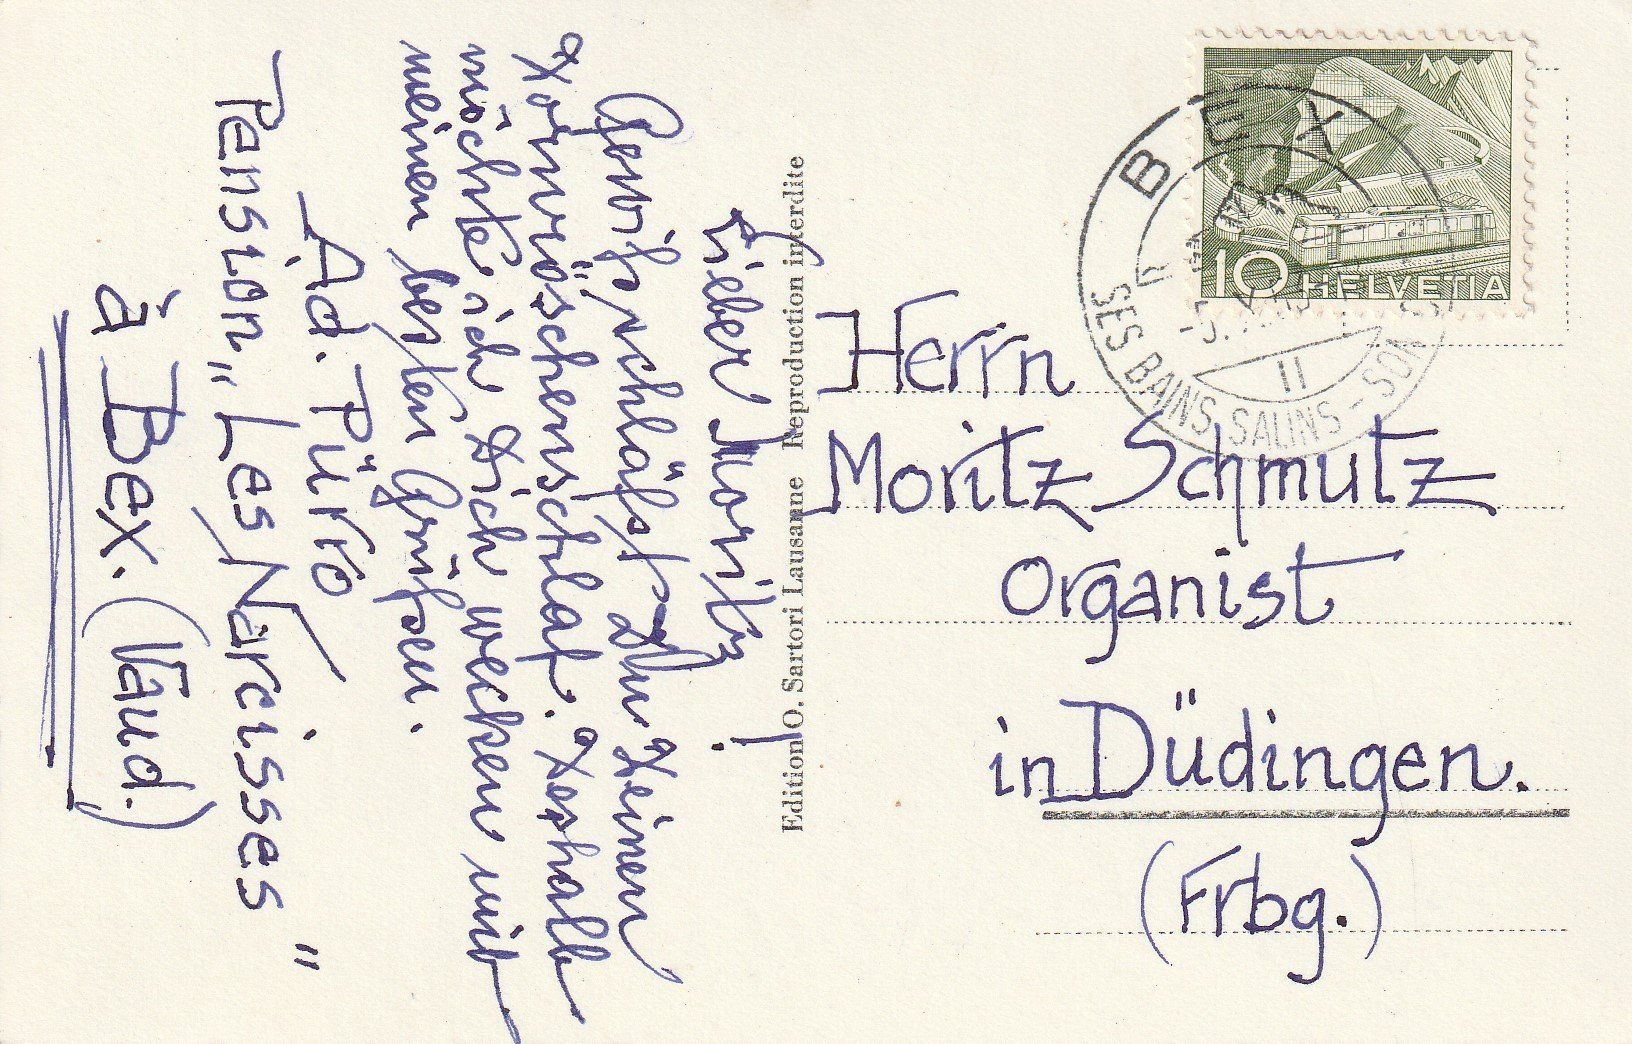 Lieber Moritz!
Gewiss schläfst Du Deinen
Dornröschenschlaf. Deshalb
möchte ich Dich wecken mit
meinen besten Grüssen.
Ad. Pürro
Pension „Les Narcisses"
à Bex. (Vaud.)
Edition O. Sartori Lausanne Reproduction interdite
BEX
SES BAINS SALINS -
10 HELVETIA
Herrn
Moritz Schmutz
Organist
in Düdingen.
(Frbg.)